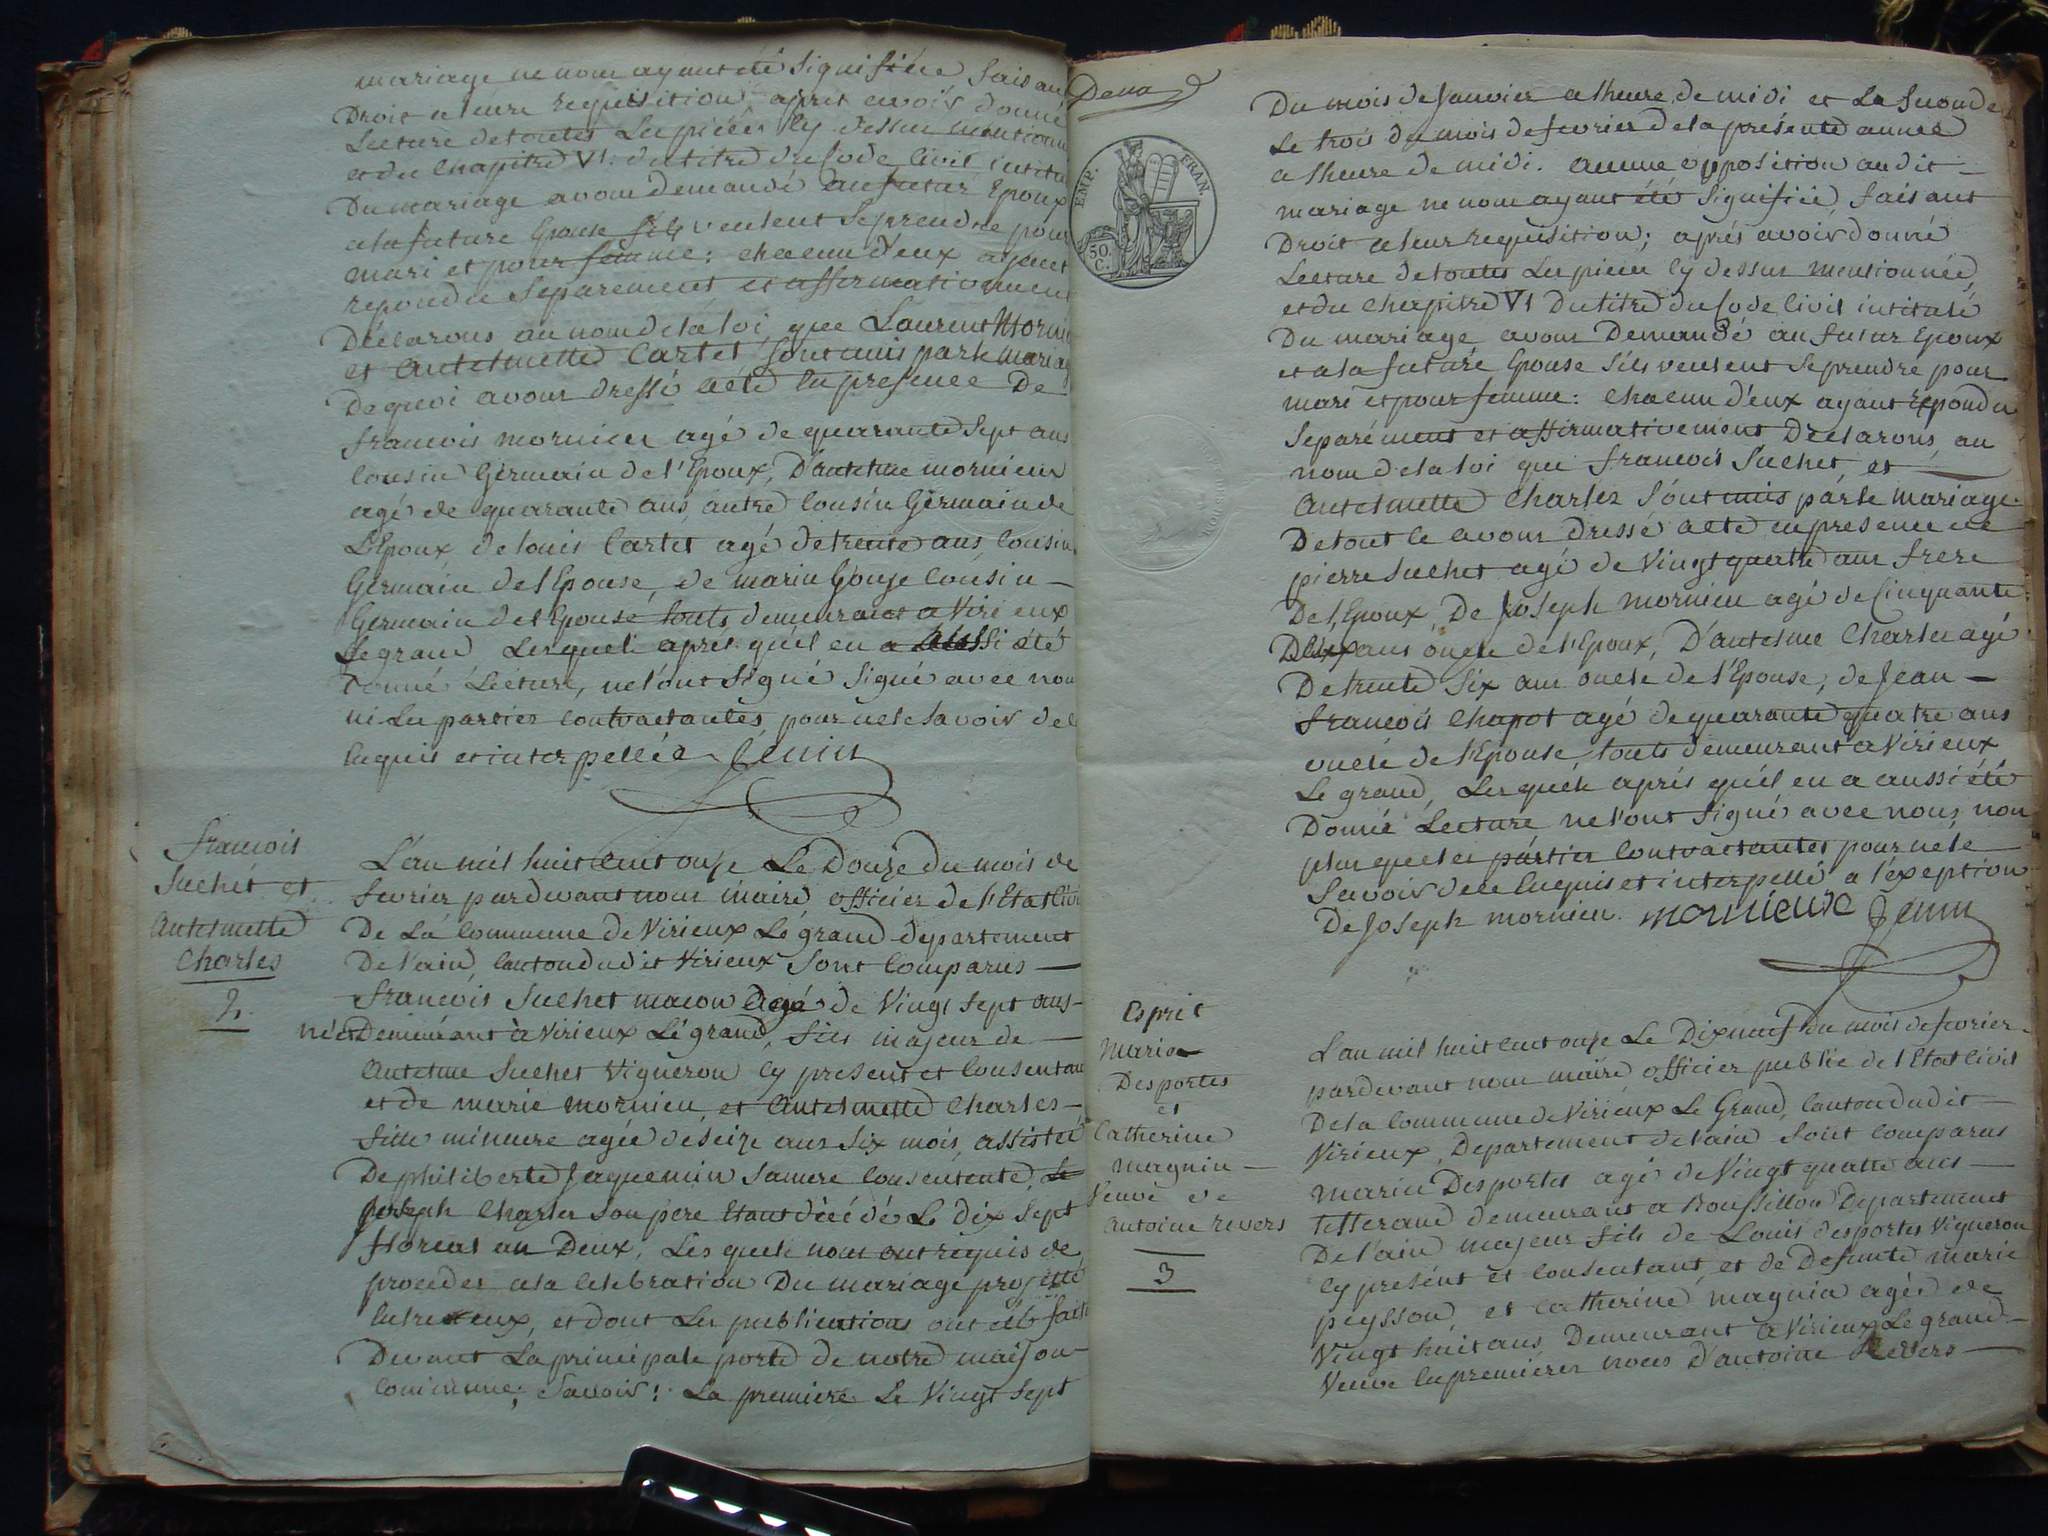 mariage ne nous ayant été signifiée faisant
Droit a leure requisition, aprés avoir donné
Lecture de toutes Les pièces cy dessus mentionn
et du Chapitre VI. du titre du Code Civil intitu
Du mariage avons demandé au futur Epoux
a la future Epouse s'ils veulent se prendre pour
mari et pour femme: chacun d'eux ayant
repondu Separement et affirmativement
Déclarons au nom de la loi que Laurent Morni
et Antelmette Cartet sont unis par le mariag
De quoi avons dressé acte En presence De
francois mornieu agé de quarante sept ans
Cousin Germain de l'Epoux, D'antelme mornieux
agé de quarante ans, autre Cousin Germain de
L'Epoux de Louis Cartet agé de trente ans, Cousin
Germain de l'Epouse, de marin Gouje Cousin —
Germain de l'Epouse touts demeurant a Viri eux
Le grand Lesquels aprés qu'il en a aussi été
Donné Lecture, ne l'ont Signé Signé avec nou
ni Les parties Contractantes pour ne le Savoir de c
Enquis et interpellée Genin
francois
Suchet et
Antelmette
Charles
2.
L'an mil huit Cent onze Le Douze Du mois de
fevrier pardevant nous maire officier de l'Etat Civi
De La Commune de Virieux Le grand departement
De l'ain, Canton dudit Virieux Sont Comparus —
francois Suchet macon agé de Vingt sept ans-
né et Demeurant à Virieux Lé grand, fils majeur de —
Antelme Suchet Vigneron Cy present et Consentan
et de marie mornieu, et Antelmette Charles —
fille mineure agée de seize ans Six mois, assisteé
De philiberte Jaquemin Sa mere Consentente, Le
Joseph Charles Son père Etant décédé Le Dix Sept
floreal an Deux, Les quels nous ont riquis de
proceder a la Celebration Du mariage projetté
Entre eux, et dont Les publications ont été fait
Devant La principale porte de notre maison
Commune; Savoir: La premiere Le Vingt Sept
Deua
EMP. FRAN.
50 C.
Du mois de Janvier a l'heure de midi et La Seconde
Le trois du mois de fevrier de la présente année
a l'heure de midi. aucune opposition au dit —
mariage ne nous ayant été signifiée, faisant
Droit a leur requisition; aprés avoir donné
Lecture de toutes Les pieces cy dessus mentionnée,
et du Chapitre VI Du titre du Code Civil intitulé
Du mariage avons Demandé au futur Epoux
et a la future Epouse s'ils veulent se prendre pour
mari et pour femme: Chacun d'eux ayant repondu
Separément et affirmativement Declarons, au
nom de la loi que francois Suchet et —
Antelmette Charles Sont unis par le mariage.
De tout Ce avons Dressé acte en presence de
pierre Suchet agé de Vingt quatre ans frere
De l'Epoux, De Joseph mornieu agé de Cinquante
Deux ans oncle de l'Epoux, D'antelme Charles agé
De trente Six ans oncle de l'Epouse, de Jean —
francois Chapot agé de quarante quatre ans
oncle de l'Epouse touts demeurant a Virieux
Le grand, Lesquels aprés qu'il en a aussi été
Donné Lecture ne l'ont Signé avec nous non
plus que les parties Contractantes pour ne le
Savoir de ce Enquis et interpellé a l'éxeption
De Joseph mornieu. mornieuxe Genin
Esprit
Marie
Desportes
et
Catherine
magnin —
Veuve de
antoine revers
3
L'an mil huit Cent onze Le Dixneuf du mois de fevrier
pardevant nous maire officier public de l'Etat Civil
De la Commune de Virieux Le Grand, Canton dudit —
Virieux, Departement de l'ain Sont Comparus
Marin Desportes agé de Vingt quatre ans —
tisserand demeurant a Roussillon Departement
De l'ain majeur fils de Louis desportes Vigneron
Cy présent et Consentant, et de Defunte marie
peysson, et Catherine magnin agée de
Vingt huit ans Demeurant a Virieux Le grand-
Veuve En premieres noces D'antoine Revers —